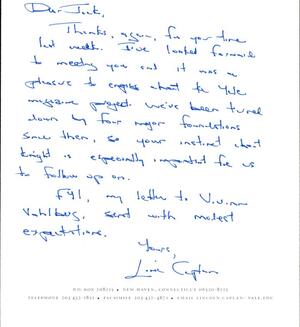 Dear Jack,
Thanks, again, for your time
last week. I've looked forward
to meeting you and it was a
pleasure to engage about the Yale
magazine project. We've been turned
down by four major foundations
since then, so your instinct about
Knight is especially important for us
to follow up on.
FYI, my letter to Vivian
Vahlberg, sent with modest
expectations.
Yours,
Linc Caplan
P.O. BOX 208215 • NEW HAVEN, CONNECTICUT 06520-8215
TELEPHONE 203 432-1851 • FACSIMILE 203 432-4871 • EMAIL LINCOLN.CAPLAN@YALE.EDU